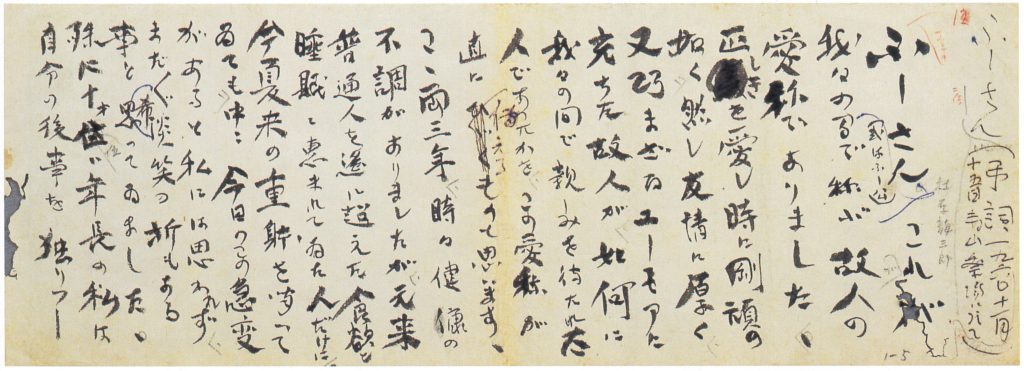 ふーさん
(弔詞 一九六〇十一月
十五日青山祭場に於て)
ふーさん これが
(或はふー公)
我々の間で称ぶ故人の
愛称でありました、
正しきを愛し時に剛頑の
如く然し友情に厚く
又巧まざるユーモアに
充ちた故人が如何に
我々の間で親しみを待たれた
人であつたかをこの愛称が
直に傳えるものと思います、
こゝ両三年 時々健康の
不調がありましたが元来
普通人を遙に超えた食欲と
睡眠に恵まれてゐた人だけに
今夏来の重態を聞いて
ゐても中々今日のこの急変
があると私には思われず
まだ〱談笑の折もある
事と思ってゐました、
殊に十才位い年長の私は
自分の後事を独りふー
1-5